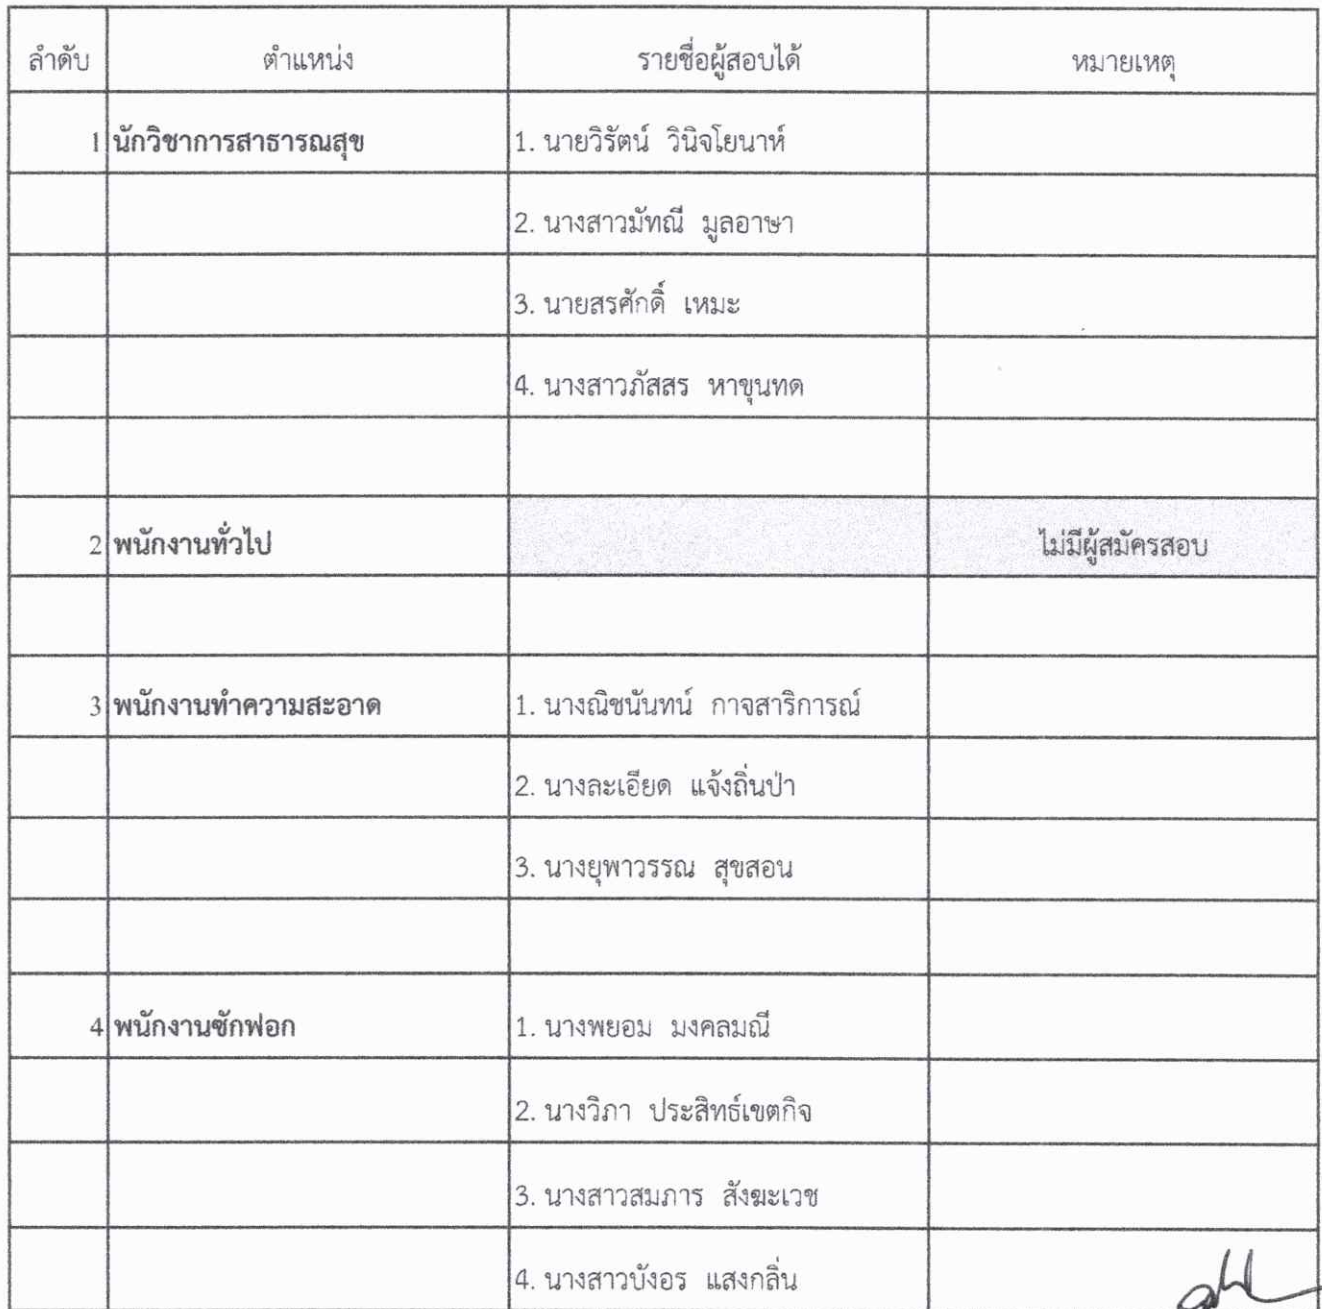 ลำดับ ตำแหน่ง รายชื่อผู้สอบได้ หมายเหตุ
1 นักวิชาการสาธารณสุข 1. นายวิรัตน์ วินิจโยนาห์
2. นางสาวมัทณี มูลอาษา
3. นายสรศักดิ์ เหมะ
4. นางสาวภัสสร หาขุนทด
2 พนักงานทั่วไป ไม่มีผู้สมัครสอบ
3 พนักงานทำความสะอาด 1. นางณิชนันทน์ กาจสาริการณ์
2. นางละเอียด แจ้งถิ่นป่า
3. นางยุพาวรรณ สุขสอน
4 พนักงานซักฟอก 1. นางพยอม มงคลมณี
2. นางวิภา ประสิทธ์เขตกิจ
3. นางสาวสมภาร สังฆะเวช
4. นางสาวบังอร แสงกลิ่น